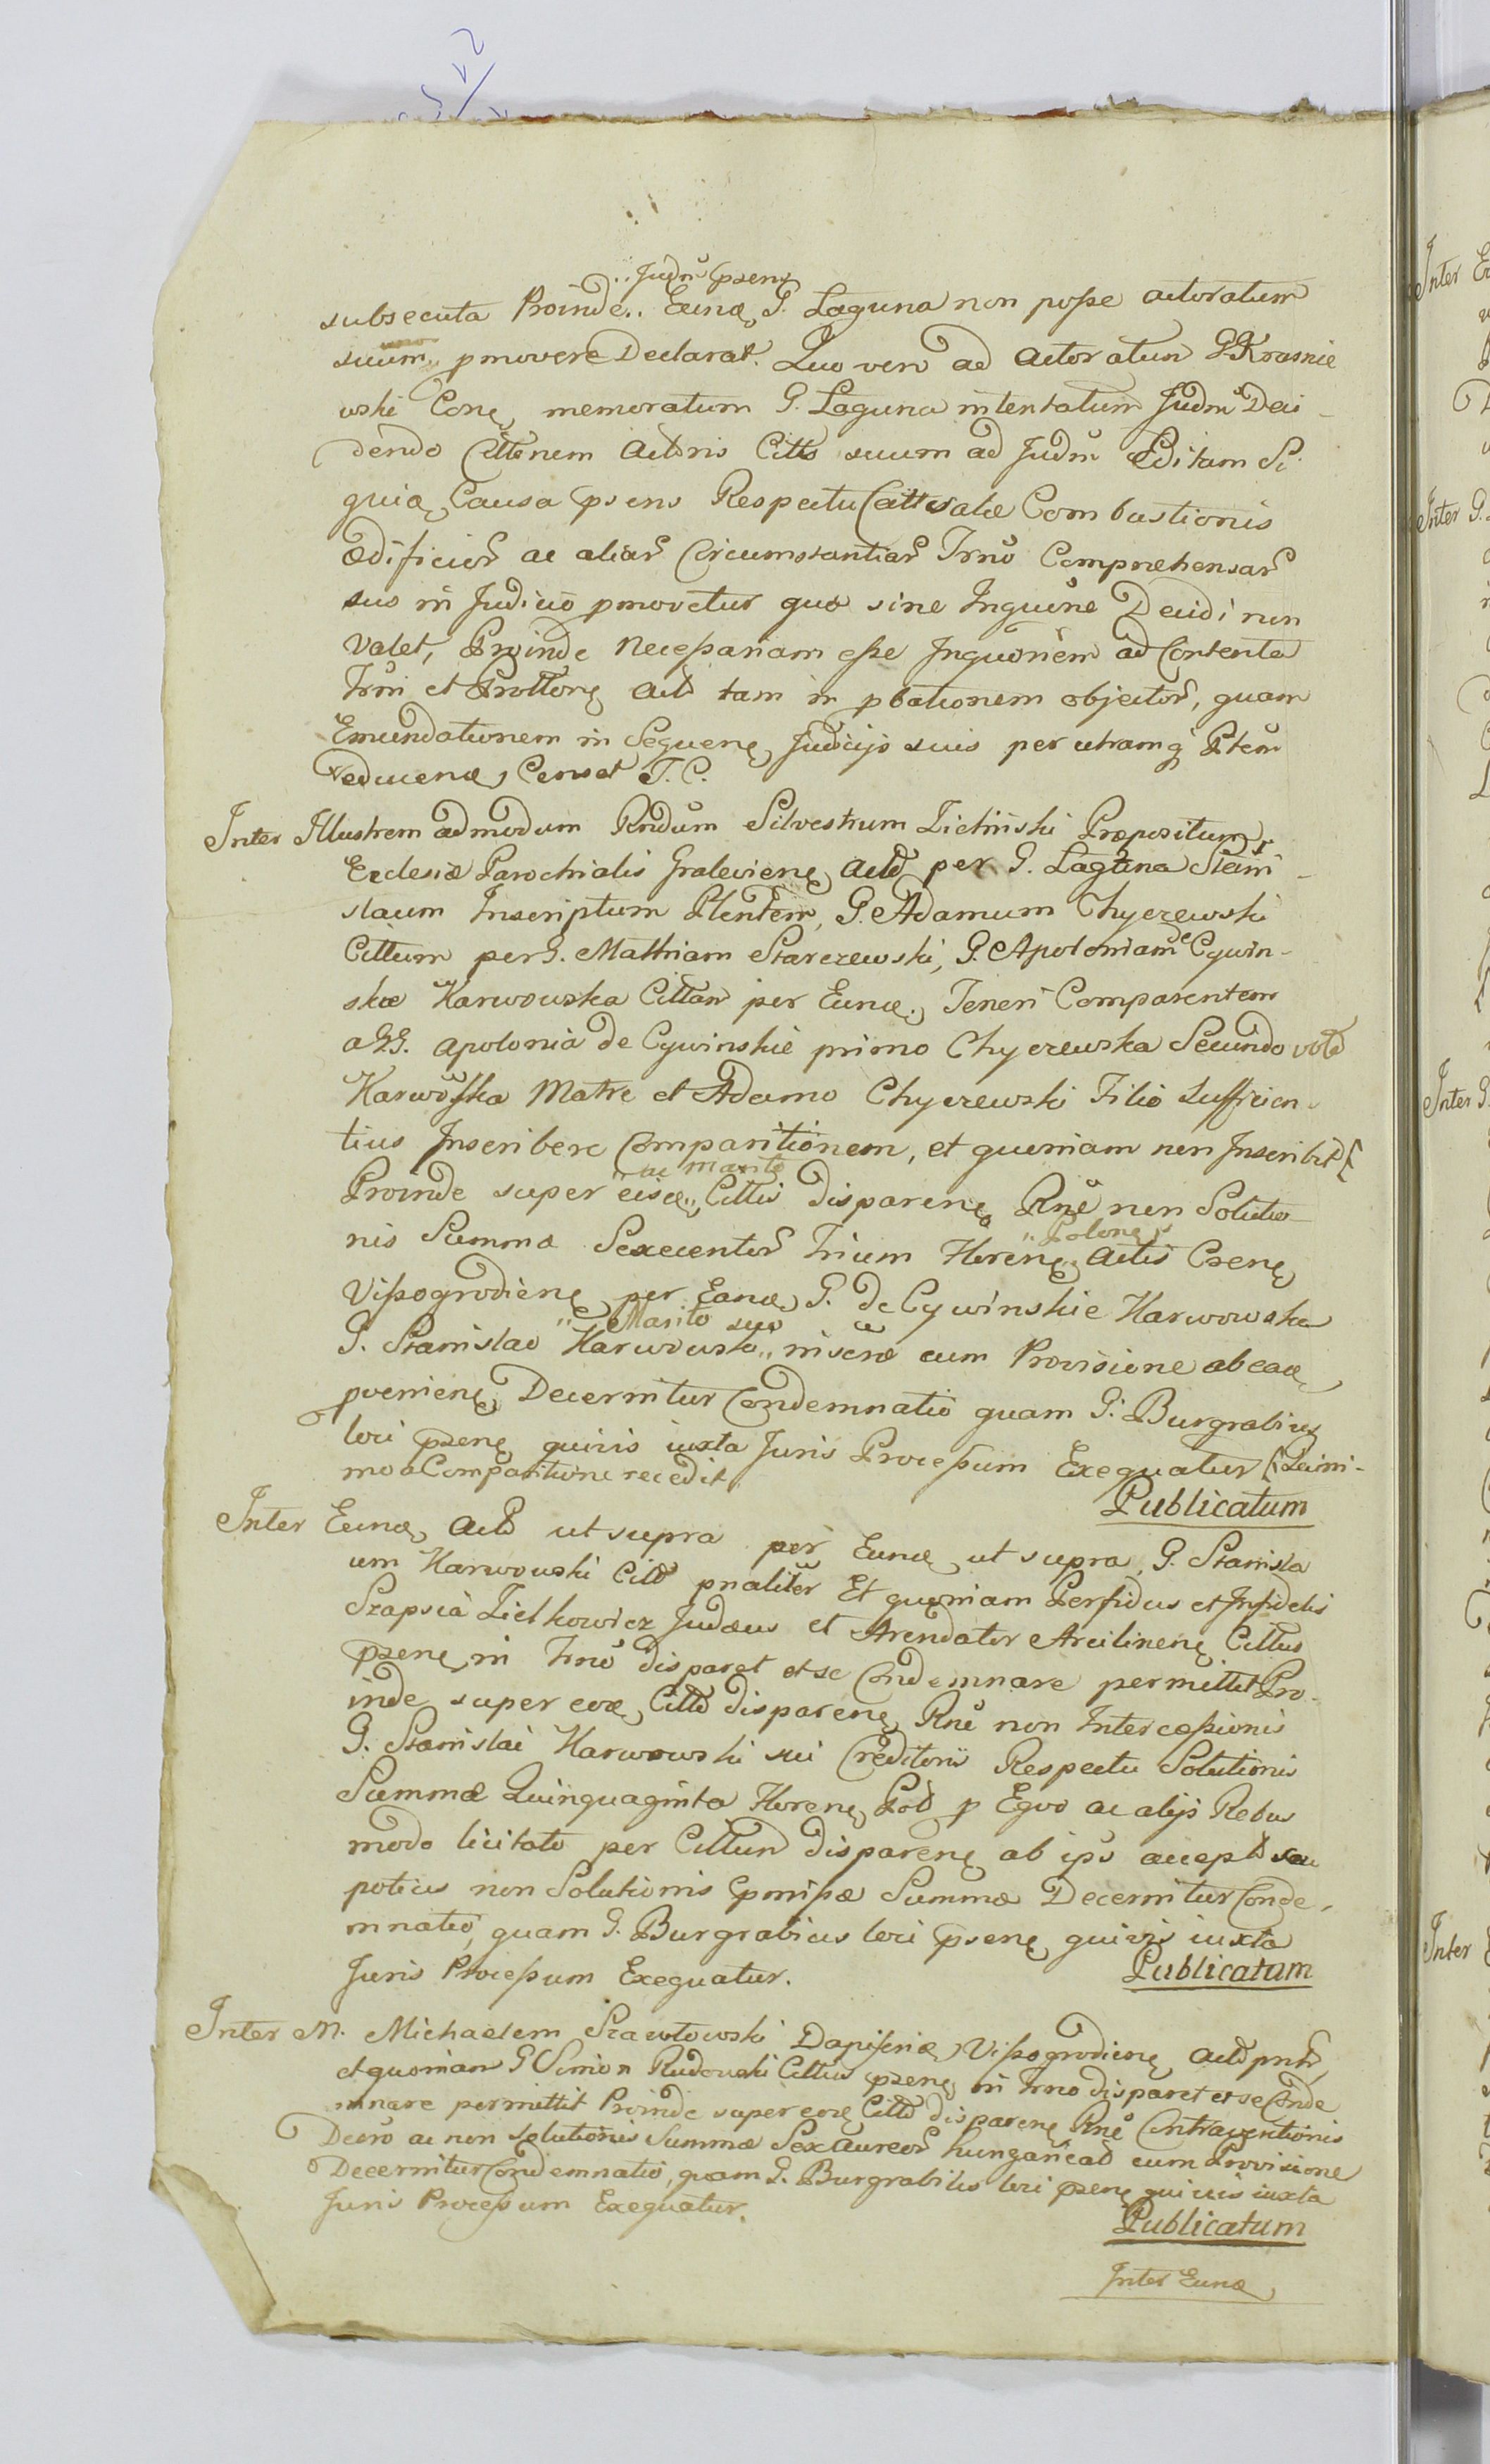 Judm psens
subsecuta Proinde Eund G. Laguna non posse actoratum
suum pmovere Declarat. Quo vero ad Actoratum G. Krasnie
wski Conq memoratum G. Laguna intentatum Judm Deci-
dendo Cittnem Actoris Citto suum ad Judm Editam Si
quid Causa psens Respectu Combustionis
ædificior ac aliar Circumstantiar Trno Comprehensar
suo in Judicio pmovetur quæ sine Inquone Decidi non
Valet, Proinde necessariam esse Inquonem ad Contenta
Trni et Prottonq Act tam in pbationem objector, quam
Emundationem in Sequenq Judicijs suis per utramq Ptem
reducend, Censet J. C.
Inter Illustrem admodum Rndum Silvestrum Zieliński Præpositum
Ecclesiæ Parochialis Gralevienq Act per G. Laguna Stani-
slaum Inscriptum Plentem, G. Adamum Chyczewski
Cittum per G. Mathiam Starczewski, G. Apoloniam Cywin-
skie Karwowska Cittam per Eund, Teneri Comparentem
a GG. Apolonia de Cywinskie primo Chyczewska Secundo voto
Karwoska Matre et Adamo Chyczewski Filio sufficien-
tius Inscribere Comparitionem, et quoniam non Inscribit
ac marito
Proinde super eisd Cittis disparenq Rne non Solutio-
Polonq
nis Summæ Sexcentor trium florenq Actis Csenq
Vissogrodienq per Eand G. de Cywinskie Karwowska
Marito suo
G. Stanislao Karwowski inscrd cum Provisione ab ead
pvenienq Decernitur Condemnatio quam G. Burgrabius
loci psenq quivis iuxta Juris Processum Exequatur
mo a Comparitione recedit
Publicatum
Inter Eund Act ut supra per Eund ut supra, G. Stanisla
um Karwowski Citt pnaliter Et quoniam Perfidus et Infidelis
Szapsia Zielkowicz Judæus et Arendator Arcilinenq Cittus
psenq in Trno disparet et se Condemnare permittit Pro-
inde super eod Citto disparenq Rne non Intercessionis
G. Stanislai Karwowski sui Creditoris Respectu Solutionis
Summæ Quinquaginta florenq Pol p Equo ac alijs Rebus
modo licitato per Cittum disparenq ab ipso accept seu
potius non Solutionis pmissæ Summæ Decernitur Conde-
mnatio, quam G. Burgrabius loci psenq quivis iuxta
Juris Processum Exequatur.
Publicatum
Inter M. Michaelem Szawłowski Dapiferid Vissogrodienq Act pntr
et quoniam G Simon Rudowski Cittus psenq in Trno disparet et se Conde
mnare permittit Proinde super eod Citto disparenq Rne Contraventionis
Decro ac non Solutionis Summæ Sex aureor hungarical cum Provisione
Decernitur Condemnatio, quam G. Burgrabius loci psenq quivis iuxta
Juris Processum Exequatur.
Publicatum
Inter Eund
Inter
Inter G.
Inter G.
Inter